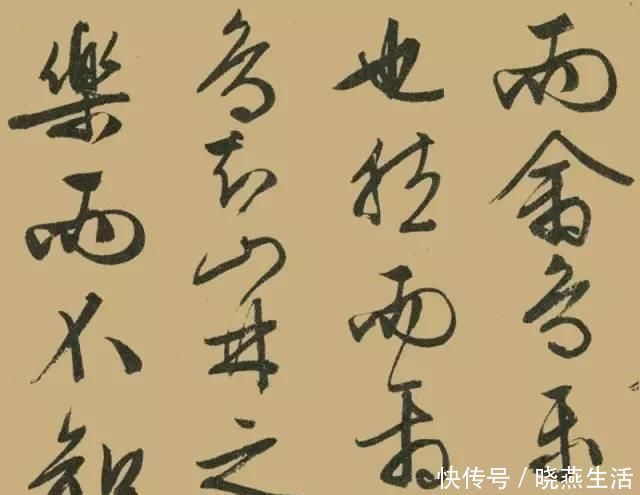 而禽鸟乐
也然而禽
鸟知山林之
樂而不知
快传号／晓燕生活